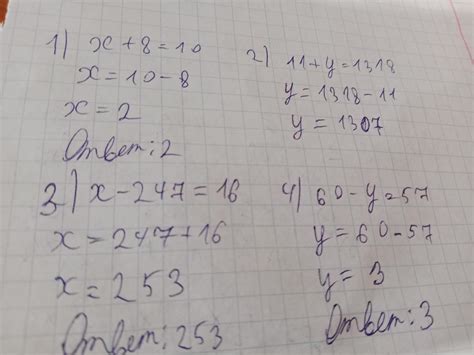 1) x + 8 = 10
x = 10 - 8
x = 2
Ответ: 2
2) 11 + y = 1318
y = 1318 - 11
y = 1307
3) x - 247 = 16
x = 247 + 16
x = 253
Ответ: 253
4) 60 - y = 57
y = 60 - 57
y = 3
Ответ: 3